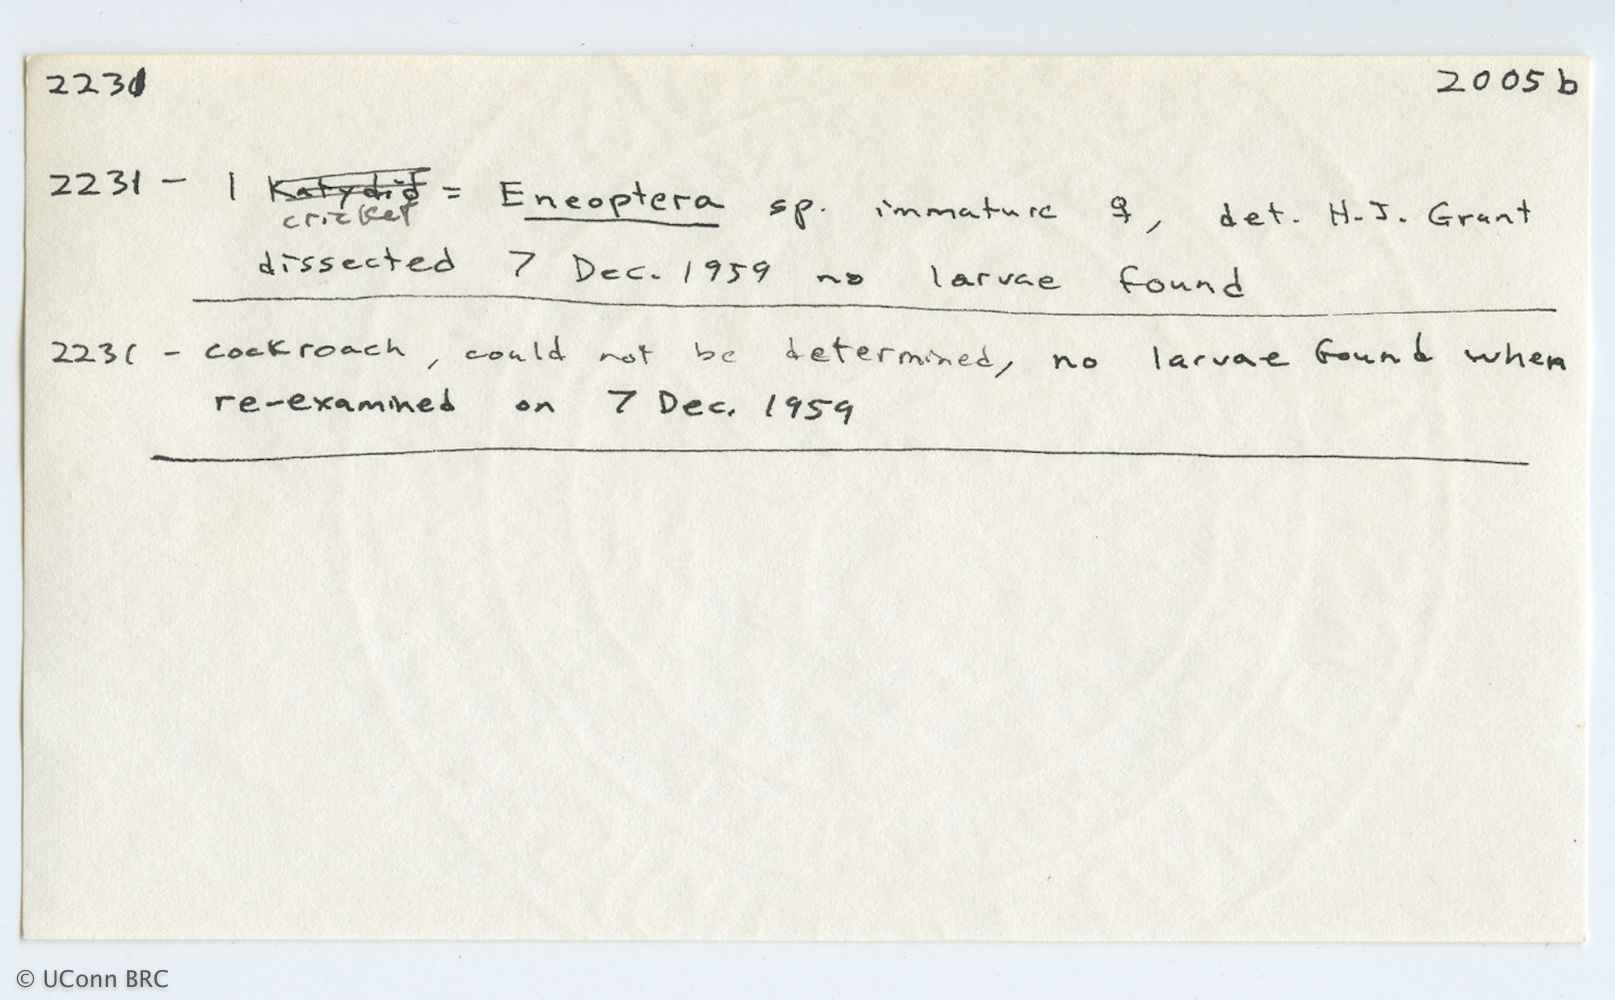 2231 2005 b
2231 - 1 Katydid = Eneoptera sp. immature ♀, det. H.J. Grant
cricket
dissected 7 Dec. 1959 no larvae found
2231 - cockroach, could not be determined, no larvae found when
re-examined on 7 Dec. 1959
© UConn BRC